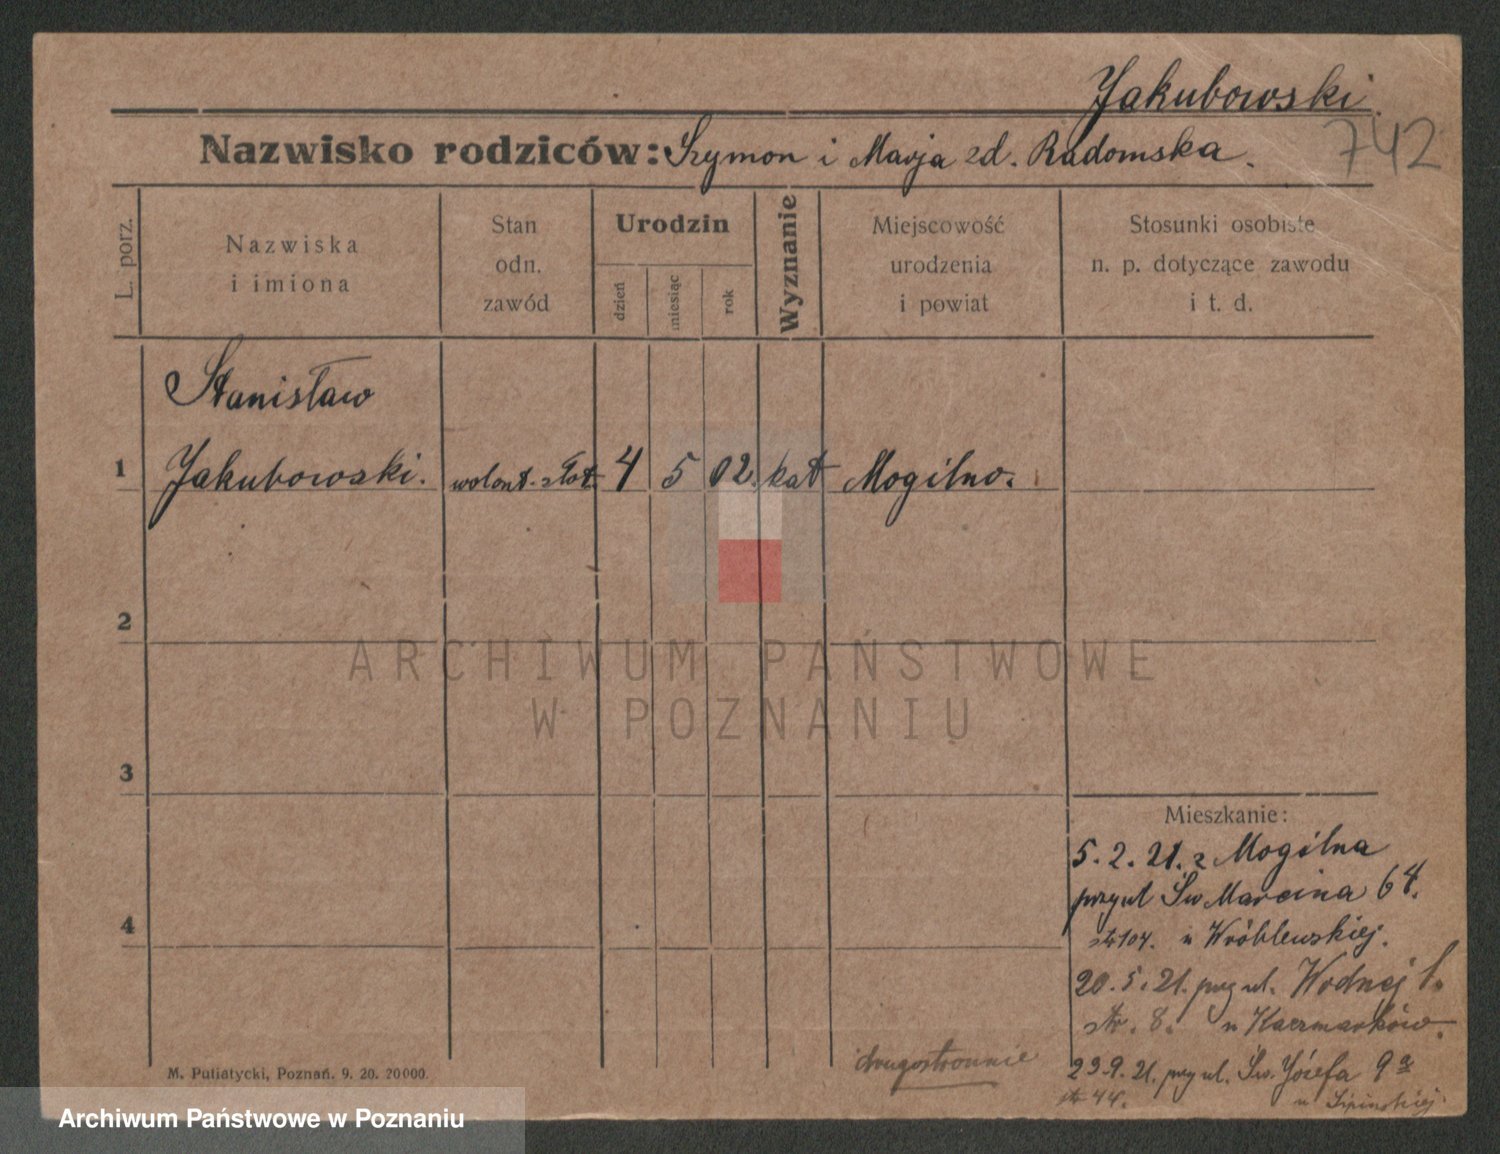 Jakubowski.
742
Nazwisko rodziców: Szymon i Marja zd. Radomska.
L. porz.
Nazwiska
i imiona
Stan
odn.
zawód
Urodzin
dzień
miesiąc
rok
Wyznanie
Miejscowość
urodzenia
i powiat
Stosunki osobiste
n. p. dotyczące zawodu
i t. d.
Stanisław
1 Jakubowski. wolont. złot. 4 5 02. kat Mogilno.
2
ARCHIWUM PAŃSTWOWE
W POZNANIU
3
Mieszkanie:
5.2.21. z Mogilna
przy ul Św Marcina 64.
str 104. u Wróblewskiej.
4
20.5.21. przy ul. Wodnej 1.
str. 8. u Kaczmarków.
drugostronnie
23.9.21. przy ul. Św. Józefa 9a
str 44. u Lipińskiej.
M. Putiatycki, Poznań. 9. 20. 20000.
Archiwum Państwowe w Poznaniu